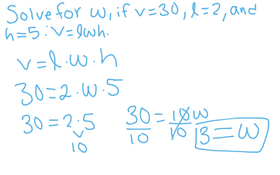 Solve for w, if v=30, l=2, and
h=5: V=lwh.
v=l·w·h
30=2·w·5
30=2·5
10
30/10 = 10w/10
3=w